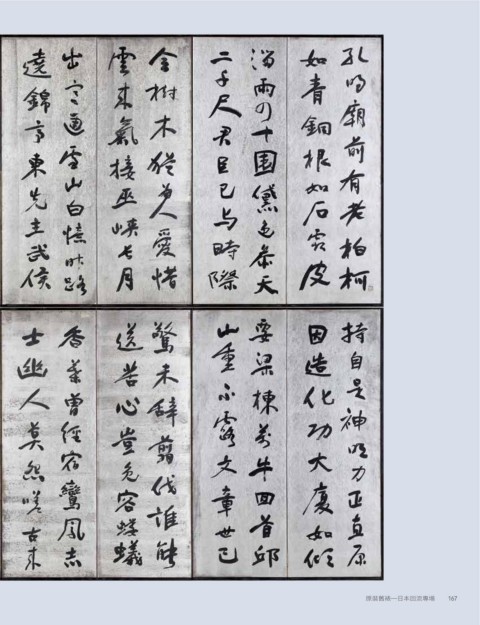 孔明廟前有老柏柯
如青銅根如石霜皮
溜雨四十圍黛色參天
二千尺君臣已与時際
會樹木猶為人愛惜
雲來氣接巫峽長月
出寒通雪山白憶昨路
遶錦亭東先主武侯
持自是神明力正直原
因造化功大廈如傾
要梁棟萬牛回首邱
山重不露文章世已
驚未辭翦伐誰能
送苦心豈免容螻蟻
香葉曾經宿鸞鳳志
士幽人莫怨嗟古來
原裝舊裱—日本回流專場 167